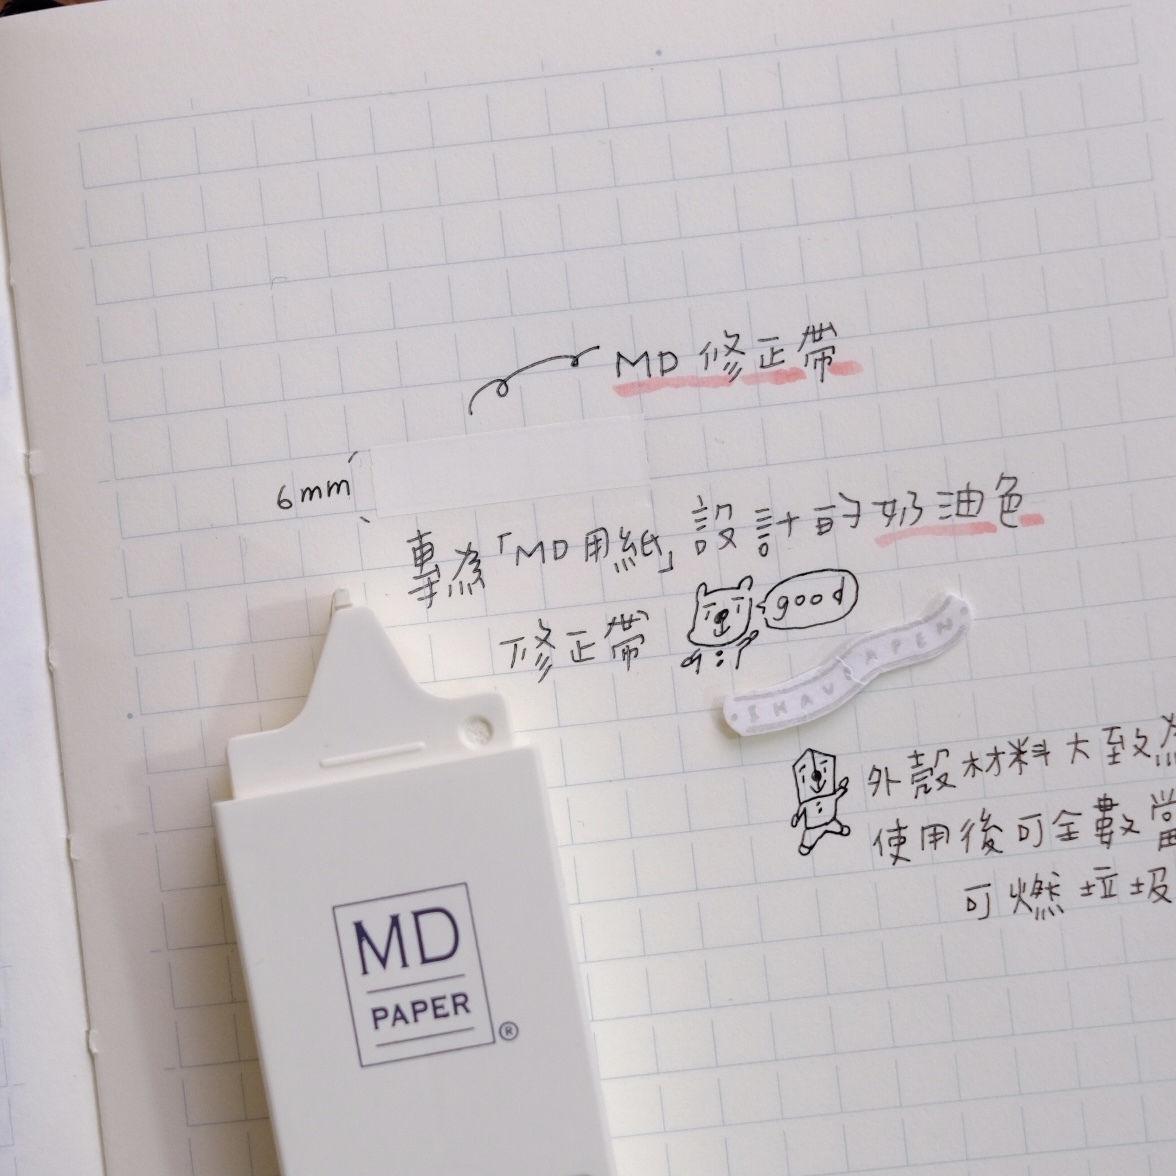 MD 修正帶
6mm
專為「MD用紙」設計的奶油色
修正帶
good
I HAVE A PEN
外殼材料大致為
使用後可全數當
可燃垃圾
MD
PAPER
®